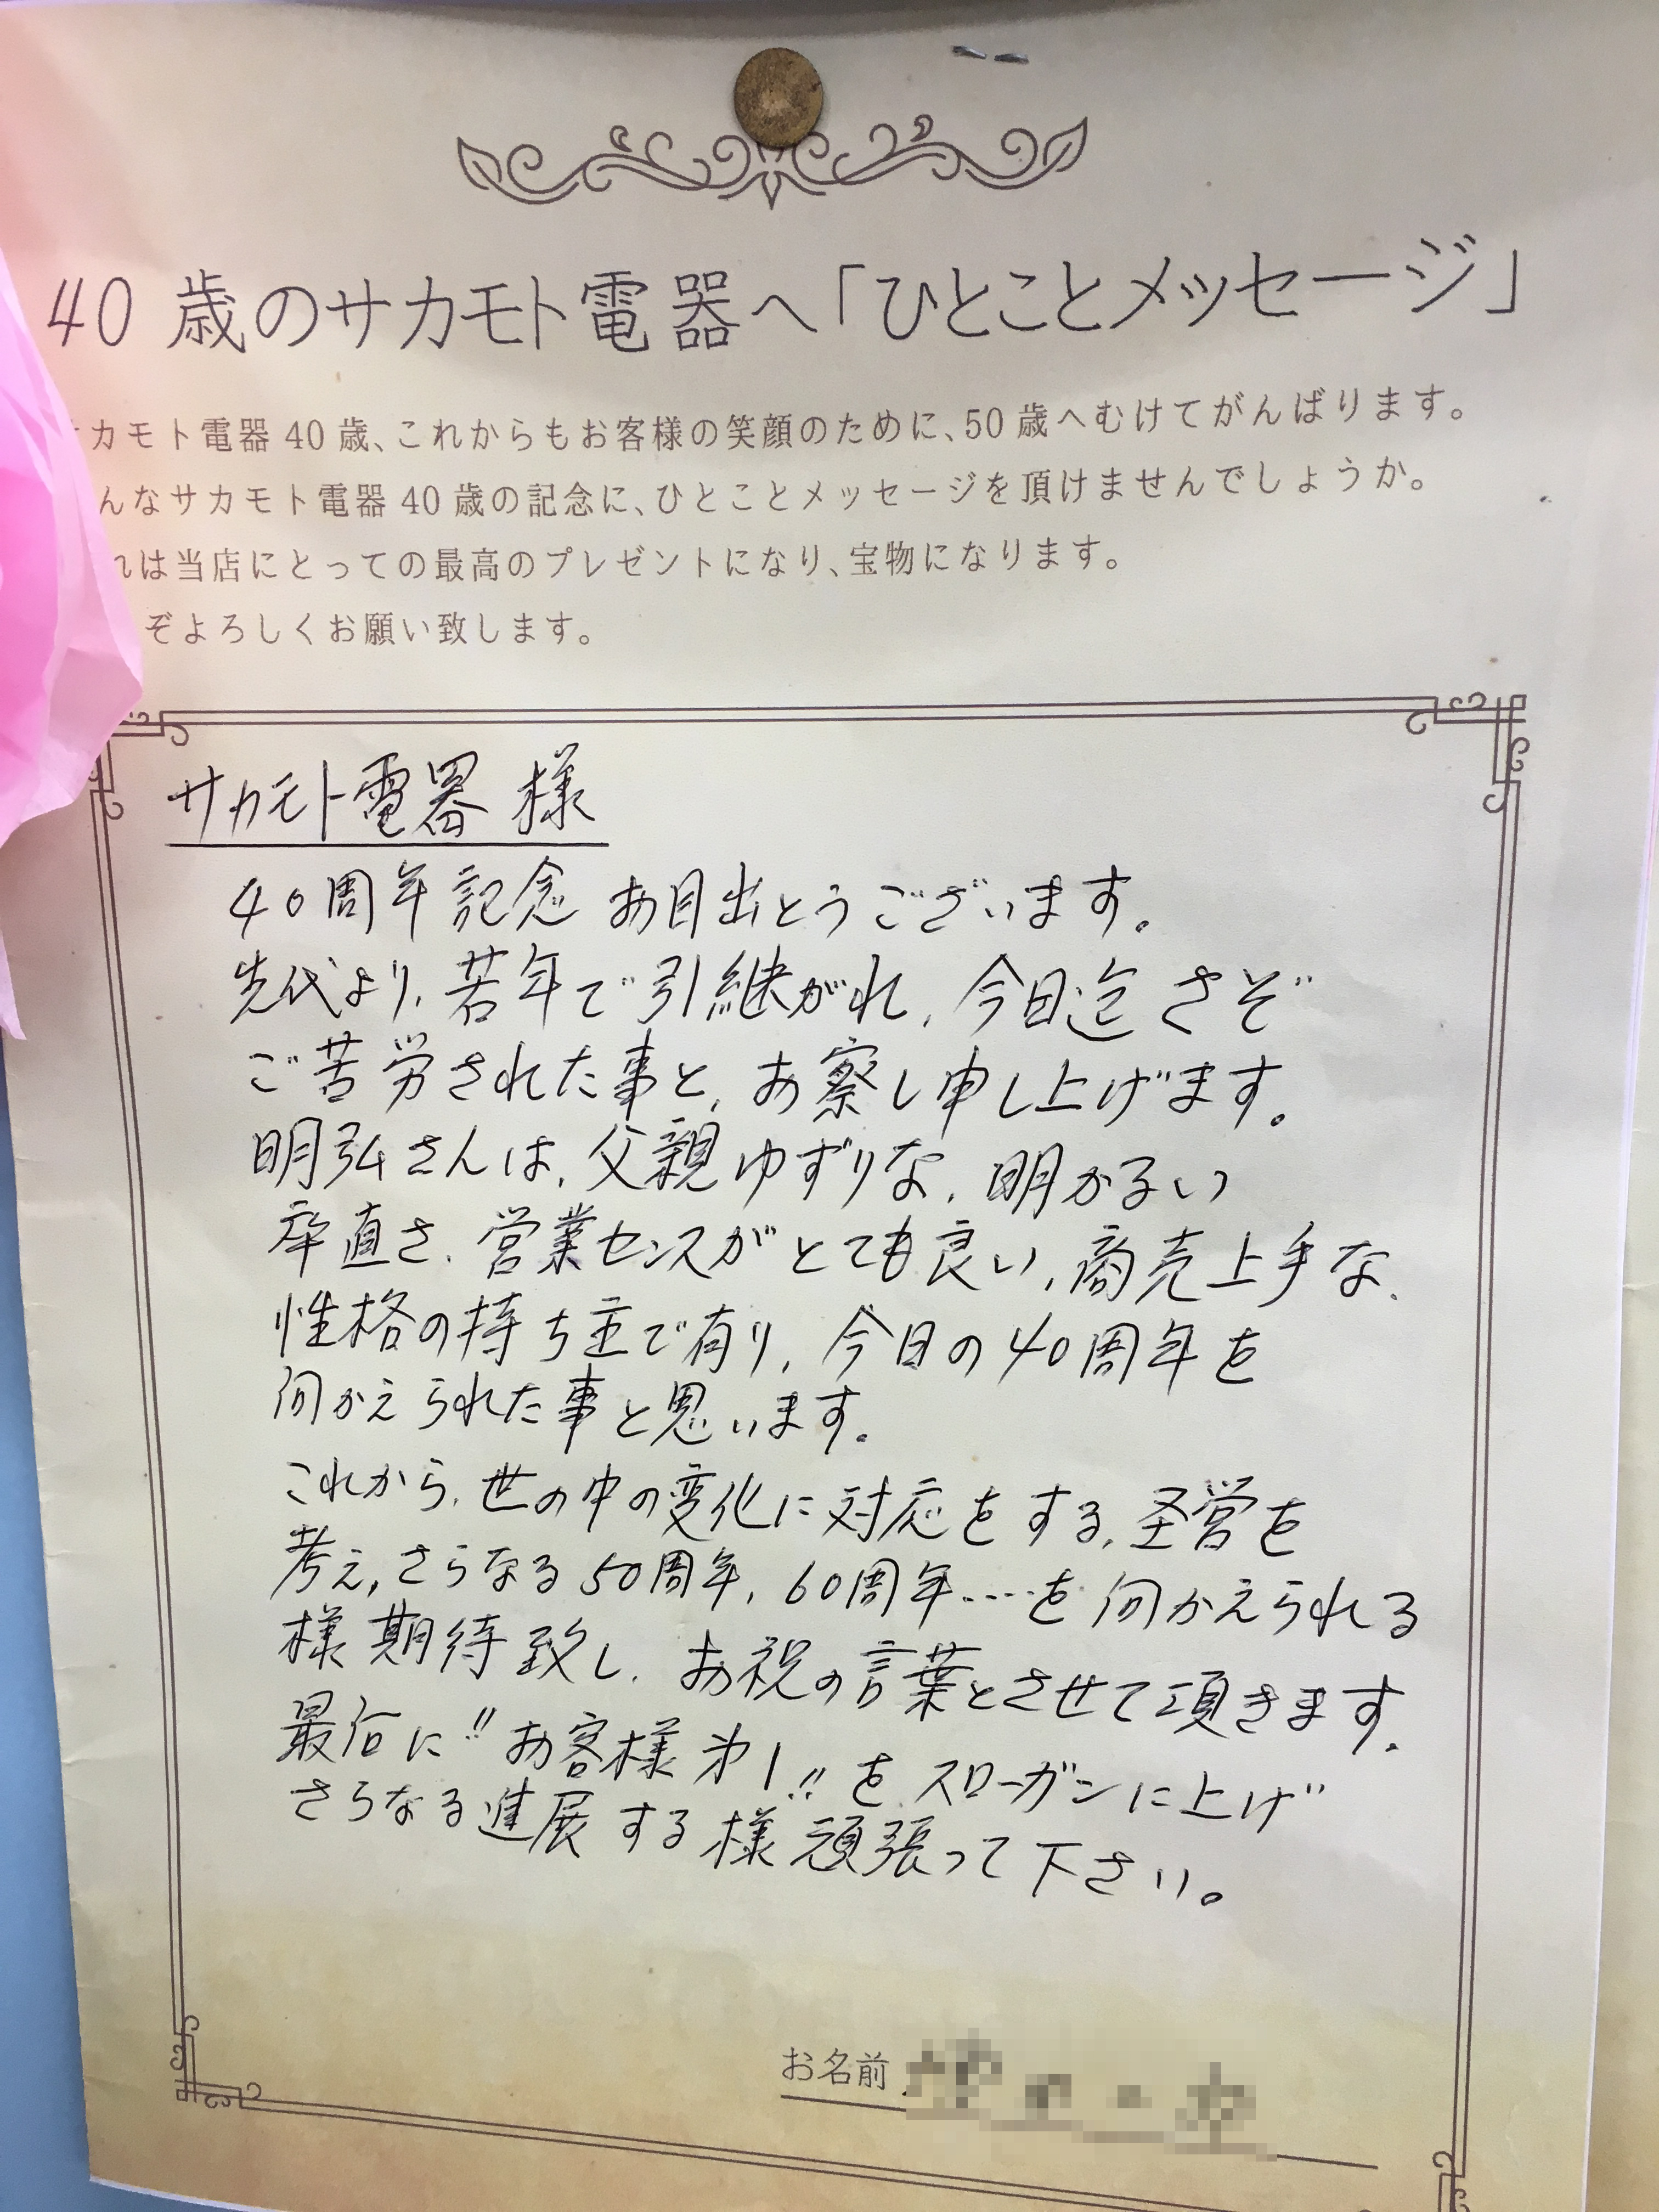 40歳のサカモト電器へ「ひとことメッセージ」
カモト電器40歳、これからもお客様の笑顔のために、50歳へむけてがんばります。
んなサカモト電器40歳の記念に、ひとことメッセージを頂けませんでしょうか。
れは当店にとっての最高のプレゼントになり、宝物になります。
ぞよろしくお願い致します。
サカモト電器 様
40周年記念 お目出とうございます。
先代より、若年で引継がれ、今日迄さぞ
ご苦労された事と、お察し申し上げます。
明弘さんは、父親ゆずりな、明かるい
率直さ、営業センスがとても良い、商売上手な、
性格の持ち主で有り、今日の40周年を
向かえられた事と思います。
これから、世の中の変化に対応をする、経営を
考え、さらなる50周年、60周年……を向かえられる
様期待致し、お祝の言葉とさせて頂きます。
最后に〃お客様第1〃をスローガンに上げ
さらなる進展する様頑張って下さい。
お名前